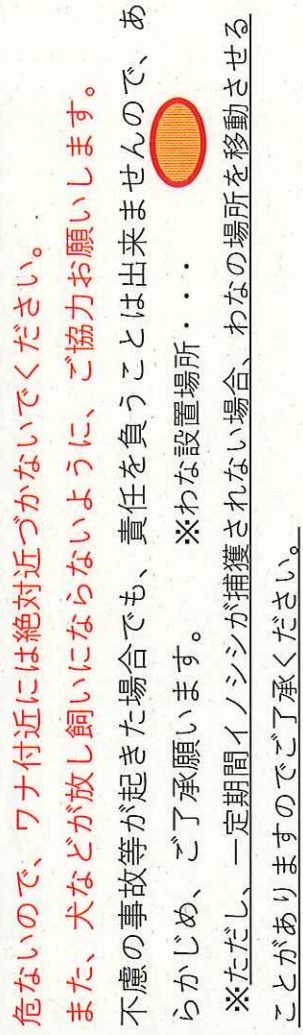 危ないので、ワナ付近には絶対近づかないでください。
また、犬などが放し飼いにならないように、ご協力お願いします。
不慮の事故等が起きた場合でも、責任を負うことは出来ませんので、あ
らかじめ、ご了承願います。　※わな設置場所・・・
※ただし、一定期間イノシシが捕獲されない場合、わなの場所を移動させる
ことがありますのでご了承ください。